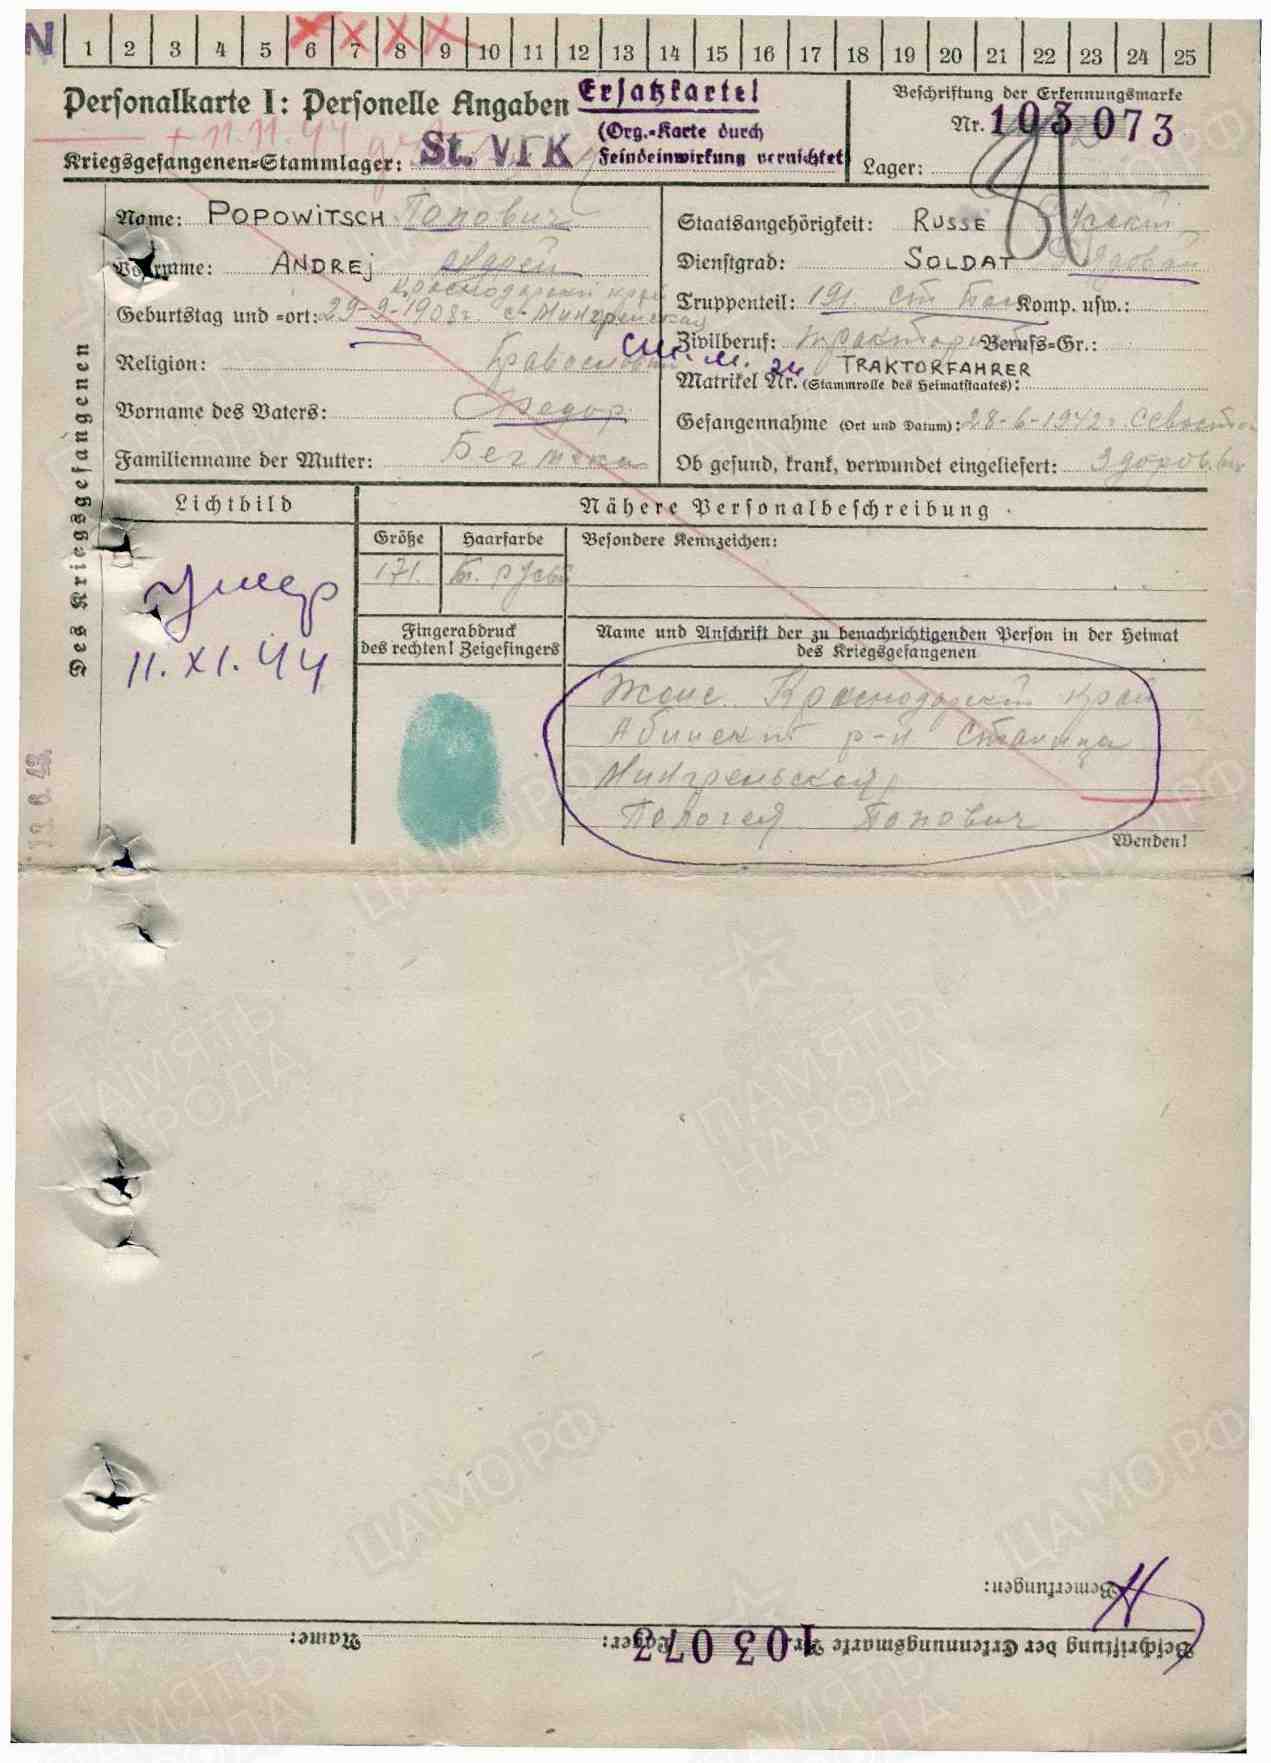 N 1 2 3 4 5 6 7 8 9 10 11 12 13 14 15 16 17 18 19 20 21 22 23 24 25
Personalkarte I: Personelle Angaben
Ersatzkarte!
(Org.-Karte durch
Feindeinwirkung vernichtet
+ 11.11.44
Kriegsgefangenen-Stammlager: St. VI K
Beschriftung der Erkennungsmarke
Nr. 103073
Lager:
Des Kriegsgefangenen
Name: POPOWITSCH Попович
Vorname: ANDREJ Андрей
Краснодарский край
Geburtstag und -ort: 29-9-1908г. с. Мингрельская
Religion: Православный
Vorname des Vaters: Федор
Familienname der Mutter:
Staatsangehörigkeit: RUSSE
Dienstgrad: SOLDAT Рядовой
Truppenteil: 191. Komp. usw.:
Zivilberuf: тракторист Berufs-Gr.:
TRAKTORFAHRER
Matrikel Nr. (Stammrolle des Heimatstaates):
Gefangennahme (Ort und Datum): 28-6-1942г. Севастоп
Ob gesund, krank, verwundet eingeliefert: Здоров.
Lichtbild
Nähere Personalbeschreibung
Größe
Haarfarbe
Besondere Kennzeichen:
171.
умер
11. XI. 44
Fingerabdruck
des rechten! Zeigefingers
Name und Anschrift der zu benachrichtigenden Person in der Heimat
des Kriegsgefangenen
Жене Краснодарский край
Абинский р-н Станица
Мингрельская
Пелогея Попович
Wenden!
Bemerkungen:
Beschriftung der Erkennungsmarke Nr. 103073 Lager: Name:
ПАМЯТЬ
НАРОДА
ЦАМО.РФ